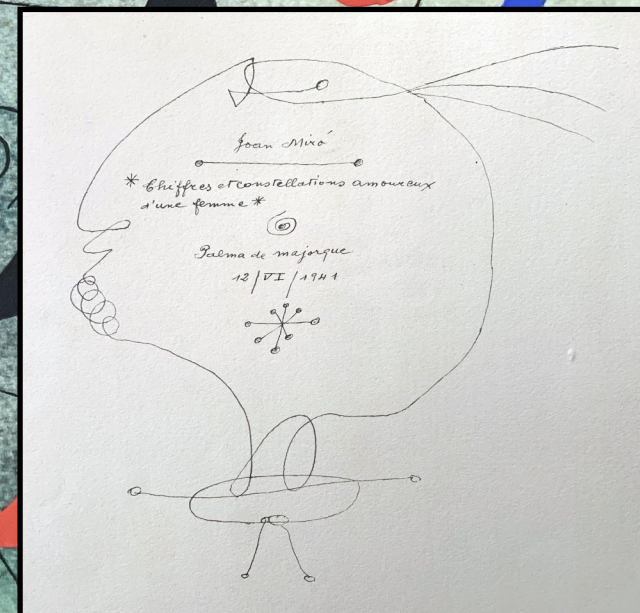 Joan Miró
* Chiffres et constellations amoureux
d'une femme *
Palma de majorque
12/VI/1941